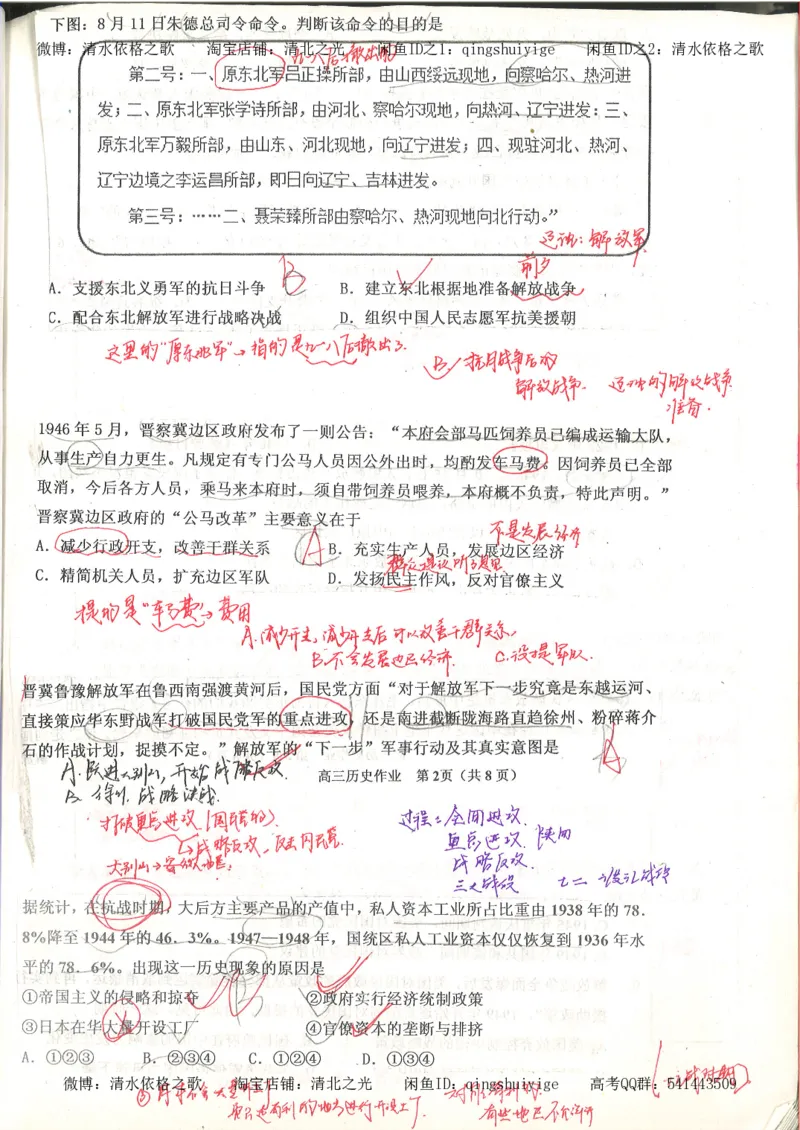 下图：8月11日朱德总司令命令。判断该命令的目的是
微博：清水依格之歌 淘宝店铺：清北之光 闲鱼ID之1：qingshuiyige 闲鱼ID之2：清水依格之歌
第二号：一、原东北军吕正操所部，由山西绥远现地，向察哈尔、热河进
发；二、原东北军张学诗所部，由河北、察哈尔现地，向热河、辽宁进发：三、
原东北军万毅所部，由山东、河北现地，向辽宁进发；四、现驻河北、热河、
辽宁边境之李运昌所部，即日向辽宁、吉林进发。
第三号：……二、聂荣臻所部由察哈尔、热河现地向北行动。”
这就：解放军
前夕
B
A．支援东北义勇军的抗日斗争 B．建立东北根据地准备解放战争
C．配合东北解放军进行战略决战 D．组织中国人民志愿军抗美援朝
这里的“原东北军”→指的是九一八后撤出了
B 抗日战争后的
解放战争．
准备．
1946年5月，晋察冀边区政府发布了一则公告：“本府会部马匹饲养员已编成运输大队，
从事生产自力更生。凡规定有专门公马人员因公外出时，均酌发车马费。因饲养员已全部
取消，今后各方人员，乘马来本府时，须自带饲养员喂养，本府概不负责，特此声明。”
晋察冀边区政府的“公马改革”主要意义在于
不是发展经济
A．减少行政开支，改善干群关系 A B．充实生产人员，发展边区经济
C．精简机关人员，扩充边区军队 D．发扬民主作风，反对官僚主义
提的是“车马费”→费用
A．减少开支，减少开支后可以改善干群关系，
B．不会发展边区经济． C．没提军队．
晋冀鲁豫解放军在鲁西南强渡黄河后，国民党方面“对于解放军下一步究竟是东越运河、
直接策应华东野战军打破国民党军的重点进攻，还是南进截断陇海路直趋徐州、粉碎蒋介
石的作战计划，捉摸不定。”解放军的“下一步”军事行动及其真实意图是
A
A．跃进大别山，开始战略反攻．
高三历史作业 第2页（共8页）
战略决战．
打破重点进攻（国民党的）．
过程：全面进攻．
↳战略反攻．
重点进攻．陕
大别山→
战略反攻．
三大战役
据统计，在抗战时期，大后方主要产品的产值中，私人资本工业所占比重由1938年的78．
8%降至1944年的46．3%。1947—1948年，国统区私人工业资本仅仅恢复到1936年水
平的78．6%。出现这一历史现象的原因是
①帝国主义的侵略和掠夺 ②政府实行经济统制政策
③日本在华大量开设工厂 ④官僚资本的垄断与排挤
A．①②③ B．②③④ C．①②④ D．①③④
微博：清水依格之歌 淘宝店铺：清北之光 闲鱼ID：qingshuiyige 高考QQ群：541443509